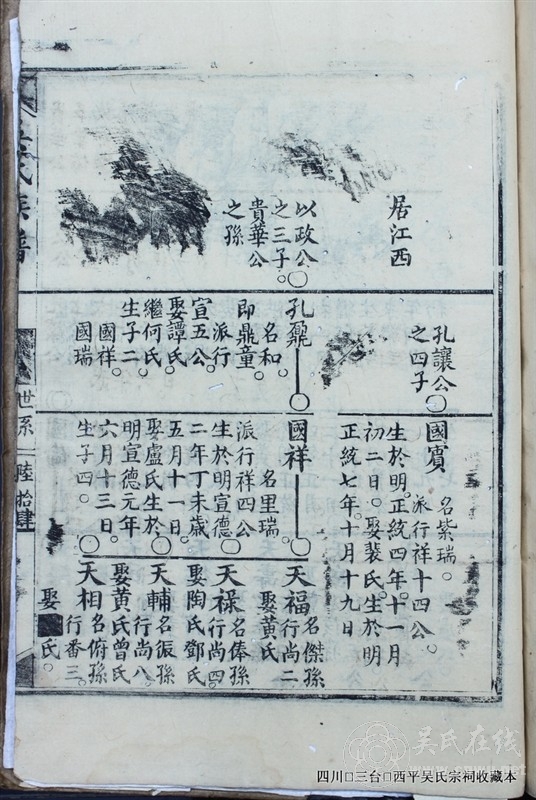 居江西
以政公
之三子
貴華公
之孫
孔讓公
之四子
孔鼐
名和。
即鼎童
派行
宣五公。
娶譚氏。
繼何氏。
生子二。
國祥。
國瑞
國賓
名紫瑞。
派行祥十四公。
生於明正統四年。十一月
初二日。娶裴氏。生於明
正統七年。十月十九日
國祥
名里瑞。
派行祥四公
生於明宣德
二年丁未歲
五月十一日
娶盧氏生於
明宣德元年
六月十三日。
生子四。
天福名傑孫
行尚二
娶黃氏
天祿名傣孫
行尚四
娶陶氏鄧氏
天輔名振孫
行尚八。
娶黃氏曾氏
天相名俯孫
行番三。
娶 氏。
氏族譜
世系
陸拾肆
吴氏在线
四川□三台□西平吴氏宗祠收藏本